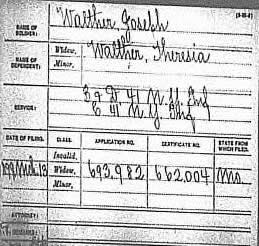 (3-65-4)
NAME OF SOLDIER: Walther, Joseph
NAME OF DEPENDENT: Widow, Walther, Theresia
Minor,
SERVICE: 41 N.Y. Inf
C 41 N.Y. Inf
DATE OF FILING. CLASS. APPLICATION NO. CERTIFICATE NO. STATE FROM WHICH FILED.
Invalid,
Mch. 13 Widow, 693,982 662,004 Mo.
Minor,
ATTORNEY:
REMARKS: